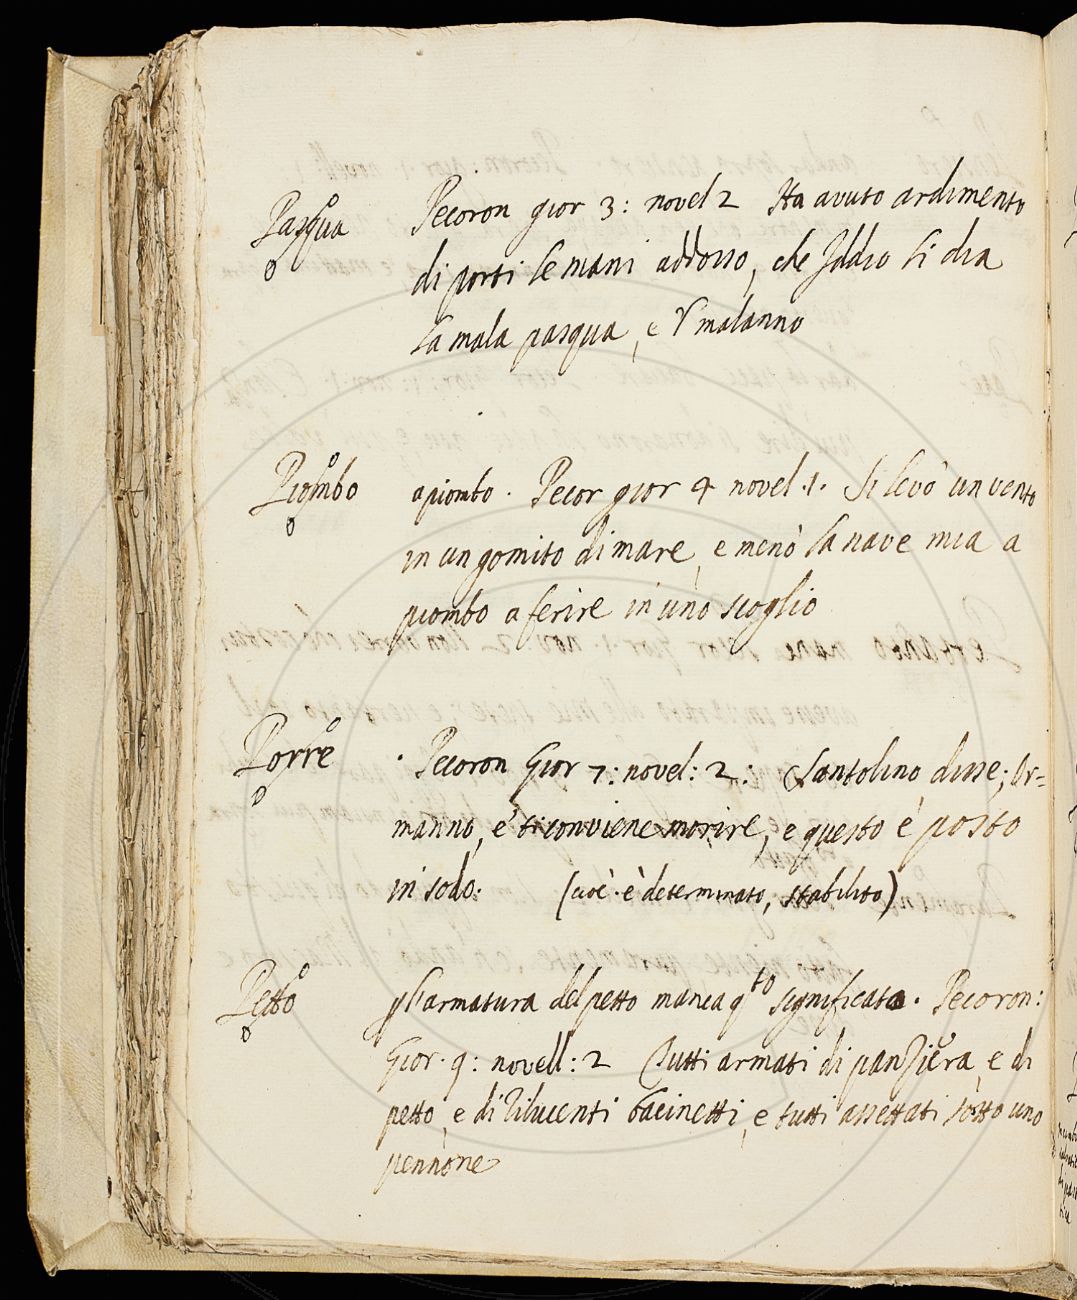 Pasqua Pecoron gior 3: novel 2 Ha avuto ardimento
di porti le mani addosso, che Iddio li dia
la mala pasqua, e 'l malanno
Piombo apiombo. Pecor gior 4 novel .1. Si levò un vento
in un gomito di mare, e menò la nave mia a
piombo a ferire in uno scoglio
Porre . Pecoron Gior 7: novel: 2: Santolino disse; Or=
manno, e' ti conviene morire, e questo è posto
in sodo. (cioè è determinato, stabilito)
Petto pl'armatura del petto manca qto significato. Pecoron:
Gior. 9: novell: 2 Tutti armati di panziera, e di
petto, e di rilucenti bacinetti, e tutti assettati sotto uno
pennone